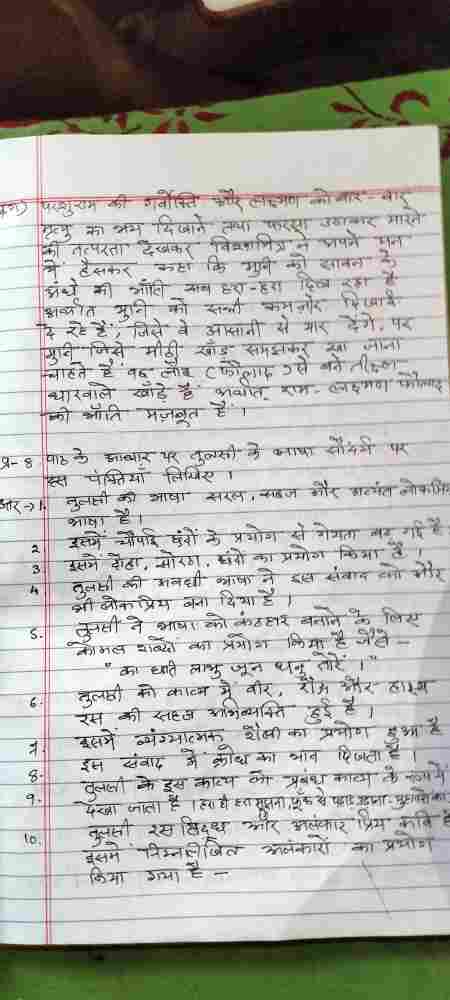 परशुराम की गर्वोक्ति और लक्ष्मण को बार - बार
मृत्यु का भय दिखाने तथा फरसा उठाकर मारने
की तत्परता देखकर विश्वामित्र ने अपने मन
में हँसकर कहा कि मुनि को सावन के
अंधे की भाँति सब हरा-हरा दिख रहा है
अर्थात मुनि को सभी कमजोर दिखाई
दे रहे हैं, जिसे वे आसानी से मार देंगे, पर
मुनि जिसे मीठी खाँड़ समझकर खा जाना
चाहते हैं वह लौह (फौलाद) से बने तीक्ष्ण
धारवाले खाँड़े हैं अर्थात- राम- लक्ष्मण फौलाद
की भाँति मजबूत हैं ।
प्र- 8 पाठ के आधार पर तुलसी के भाषा सौंदर्य पर
दस पंक्तियाँ लिखिए ।
1. तुलसी की भाषा सरल, सहज और अत्यंत लोकप्रिय
भाषा है ।
2. इसमें चौपाई छंदों के प्रयोग से गेयता बढ़ गई है
3. इसमें दोहा, सोरठा, छंदों का प्रयोग किया है ।
4. तुलसी की अवधी भाषा ने इस संवाद को और
भी लोकप्रिय बना दिया है ।
5. तुलसी ने भाषा को कंठहार बनाने के लिए
कोमल शब्दों का प्रयोग किया है जैसे -
"का छति लाभु जून धनु तोरें ।"
6. तुलसी के काव्य में वीर, रौद्र और हास्य
रस की सहज अभिव्यक्ति हुई है ।
7. इसमें व्यंग्यात्मक शैली का प्रयोग हुआ है
8. इस संवाद में क्रोध का भाव दिखता है ।
9. तुलसी के इस काव्य को प्रबंध काव्य के रूप में
देखा जाता है ।
10. तुलसी रस सिद्ध और अलंकार प्रिय कवि हैं
इसमें निम्नलिखित अलंकारों का प्रयोग
किया गया है -